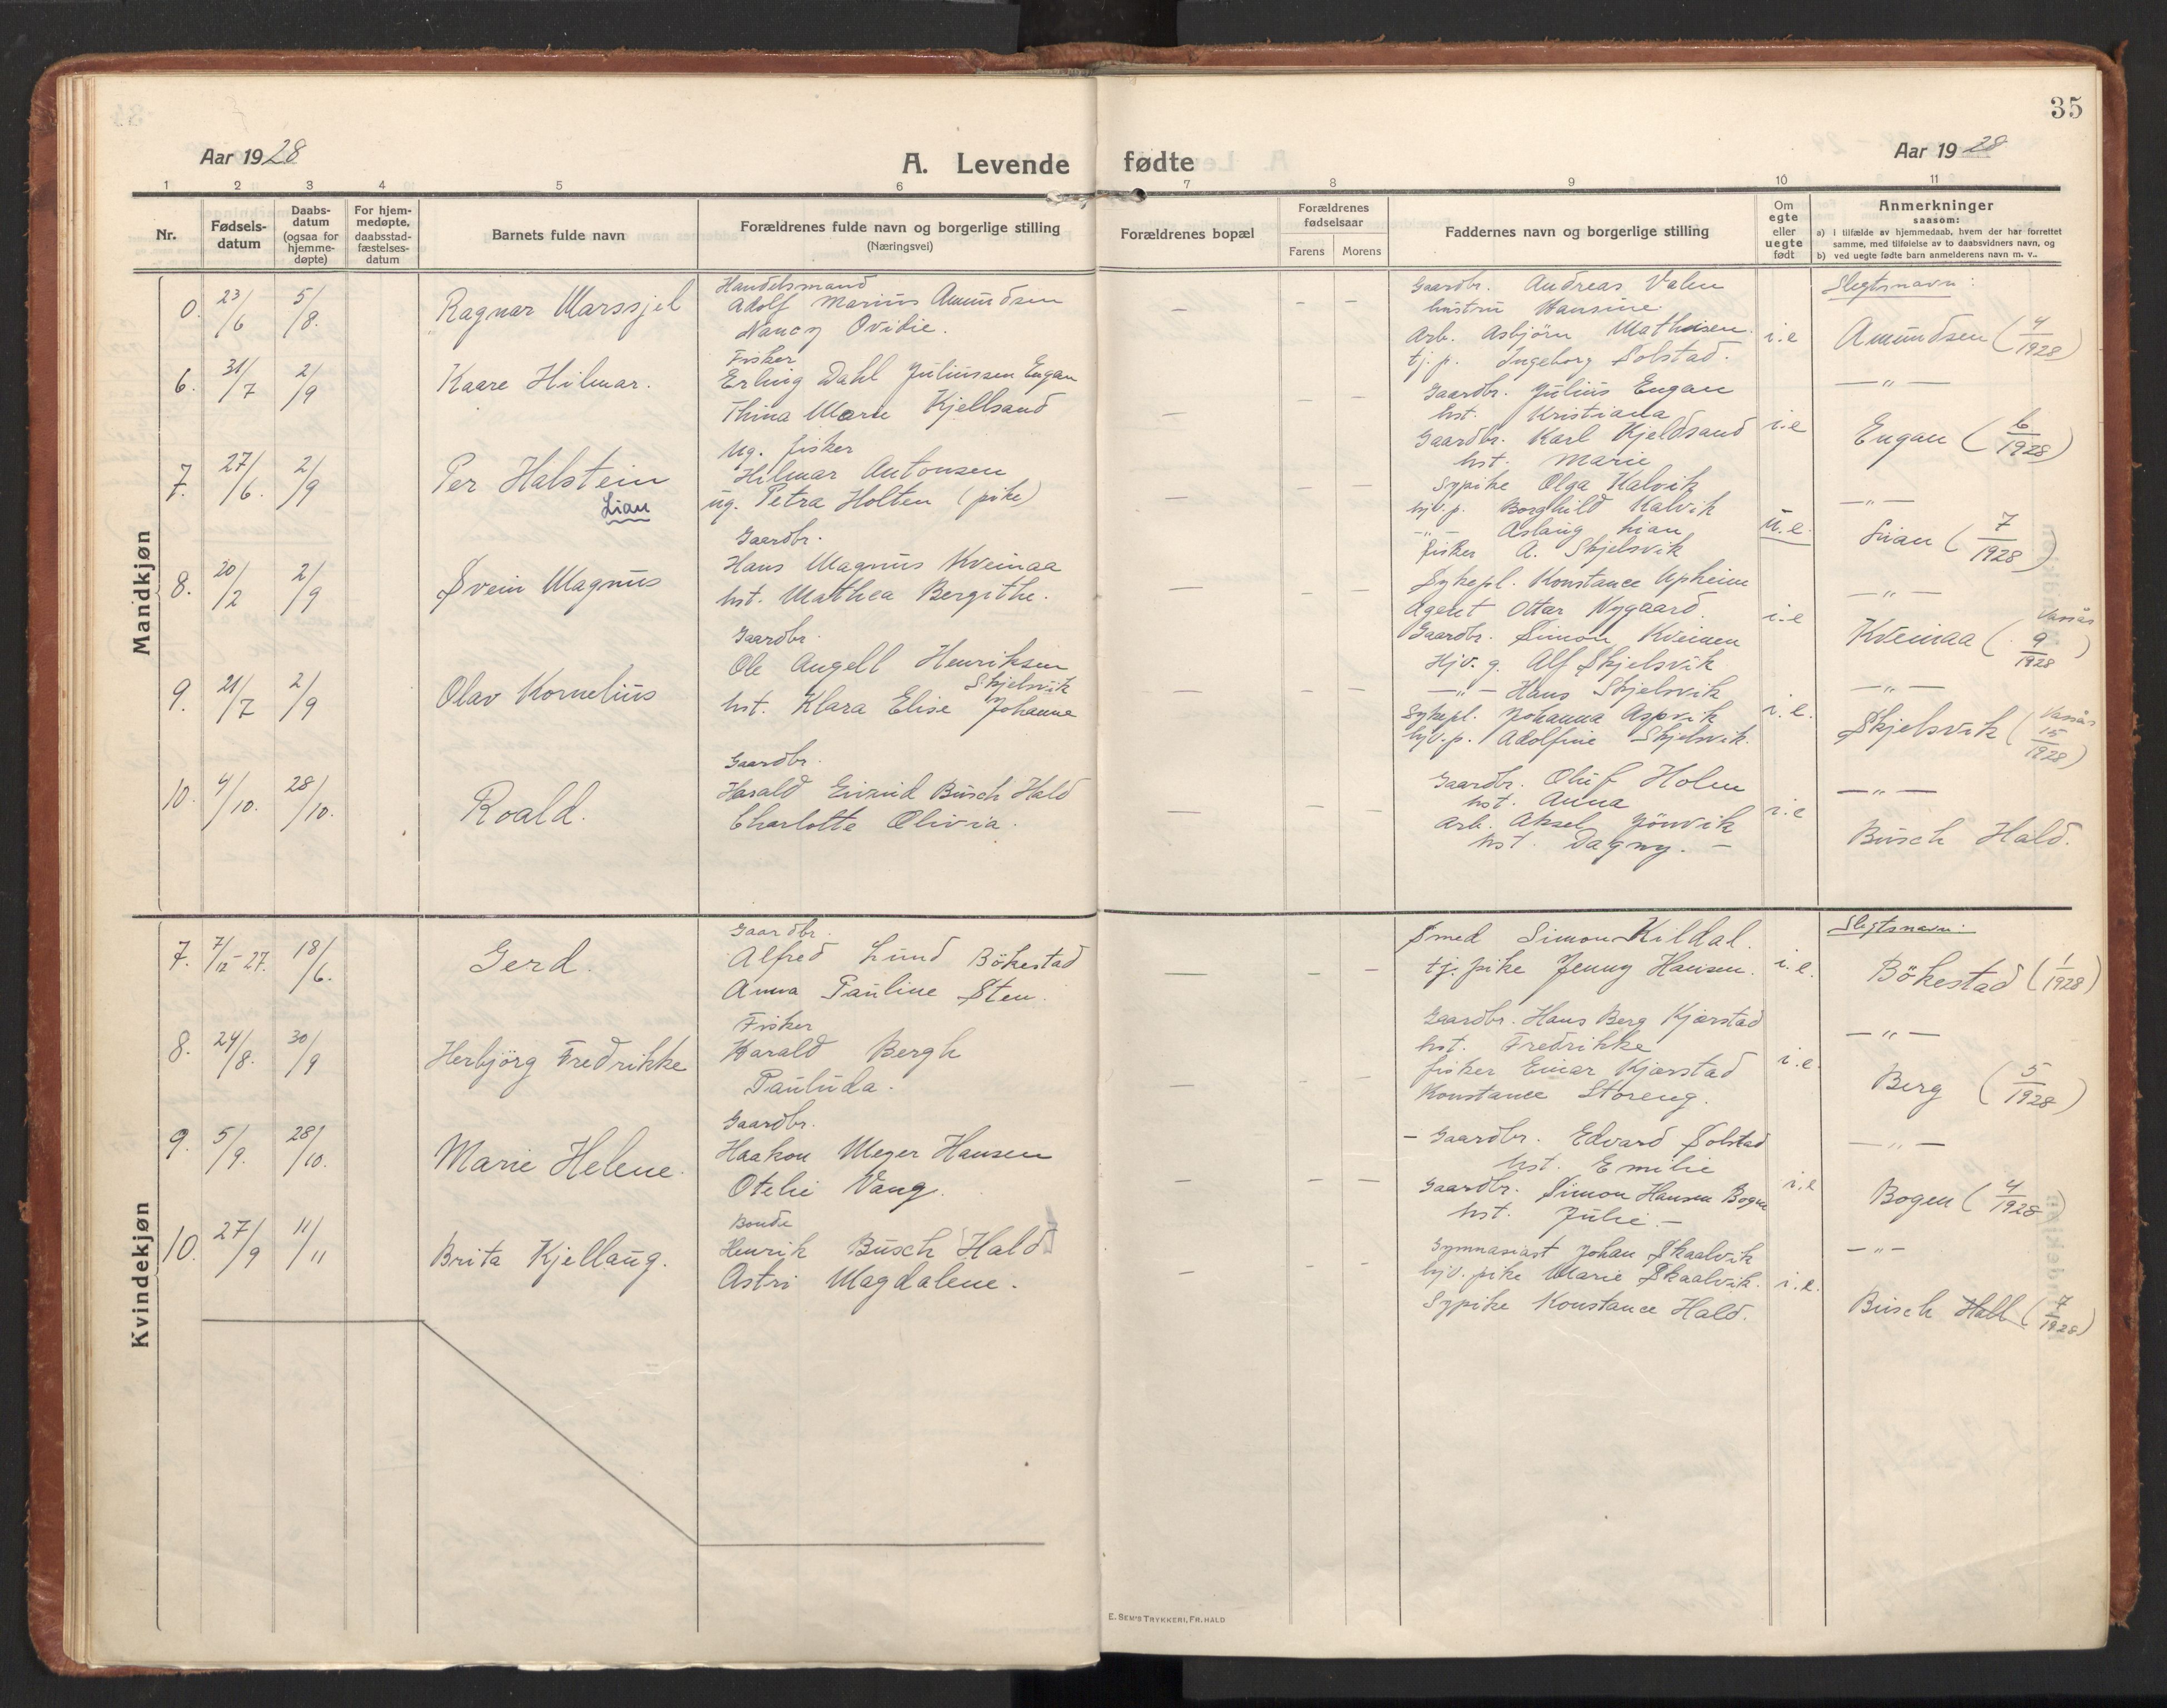 35
Aar 1928
A. Levende fødte
Aar 1928
1 2 3 4 5 6 7 8 9 10 11
Nr.
Fødsels-
datum
Daabs-
datum
(ogsaa for
hjemme-
døpte)
For hjem-
medøpte,
daabsstad-
fæstelses-
datum
Barnets fulde navn
Forældrenes fulde navn og borgerlige stilling
(Næringsvei)
Forældrenes bopæl
Forældrenes
fødselsaar
Farens Morens
Faddernes navn og borgerlige stilling
Om
egte
eller
uegte
født
Anmerkninger
saasom:
a) i tilfælde av hjemmedaab, hvem der har forrettet
samme, med tilføielse av to daabsvidners navn, og
b) ved uegte fødte barn anmelderens navn m. v..
Mandkjøn
0. 23/6 5/8. Ragnar Marssjel
Handelsmand
Adolf Marius Amundsen
Nancy Ovidie.
— – –
Gaardbr. Andreas Valen
hustru Hansine.
Arb. Asbjörn Mathisen.
tj. p. Ingeborg Solstad.
i.e
Slegtsnavn:
Amundsen (4/1928)
6. 31/7 2/9 Kaare Hilmar.
Fisker
Erling Dahl Juliussen Engan
Thina Marie Kjellsand
— – –
Gaardbr. Julius Engan
hst. Kristiana
Gaardbr. Karl Kjeldsand
hst. Marie
i.e
— " —
Engan (6/1928)
7. 27/6. 2/9 Per Halstein
Lian
Ug. fisker
Hilmar Antonsen
ug. Petra Holten (pike)
— – –
Sypike Olga Kalvik
hjv. p. Borghild Kalvik
— " — Aslaug Lian
fisker A. Skjelsvik
u.e.
— " —
Lian (7/1928)
8. 20/2 2/9 Svein Magnus
Gaardbr.
Hans Magnus Kveinaa
hst. Mathea Bergithe.
— – –
Sykepl. Konstance Upheim
Agent Ottar Nygaard
Gaardbr. Simon Kveinen
Hjv. g. Alf Skjelsvik
i.e
— " —
Kveinaa (Vassås 9/1928)
9. 21/7 2/9 Olav Kornelius
Gaardbr.
Ole Angell Henriksen
Skjelsvik
hst. Klara Elise Johanne
— – –
— " — Hans Skjelsvik
Sykepl. Johanna Aspvik
hjv. p. Adolfine Skjelsvik.
i.e.
— " —
Skjelsvik (Vassås 15/1928)
10. 4/10. 28/10. Roald.
Gaardbr.
Harald Eivind Busch Hald
Charlotte Olivia.
— – –
Gaardbr. Oluf Holm
hst. Anna
Arb. Aksel Jönvik
hst. Dagny. –
i.e
— " —
Busch Hald.
Kvindekjøn
7. 7/12-27. 18/6. Gerd.
Gaardbr.
Alfred Lund Bökestad
Anna Pauline Sten.
— – –
Smed Simon Kildal.
tj. pike Jenny Hansen.
i.e.
Slegtsnavn:
Bökestad (1/1928)
8. 24/8. 30/9 Herbjörg Fredrikke
Fisker
Harald Bergh
Pauluda.
— – –
Gaardbr. Hans Berg Kjærstad
hst. Fredrikke
fisker Einar Kjærstad
Konstance Storeng.
i.e.
— " —
Berg (5/1928)
9. 5/9. 28/10. Marie Helene.
Gaardbr.
Haakon Meyer Hansen
Otelie Vang.
— – –
– Gaardbr. Edvard Solstad
hst. Emilie
Gaardbr. Simon Hansen Bogen
hst. Julie. –
i.e
— " —
Bogen (4/1928)
10. 27/9 11/11 Brita Kjellaug.
Bonde
Henrik Busch Hald
Astri Magdalene.
— – –
Gymnasiast Johan Skaalvik
hjv. pike Marie Skaalvik.
Sypike Konstance Hald.
i.e.
— " —
Busch Hald (7/1928)
E. SEM'S TRYKKERI, FR. HALD